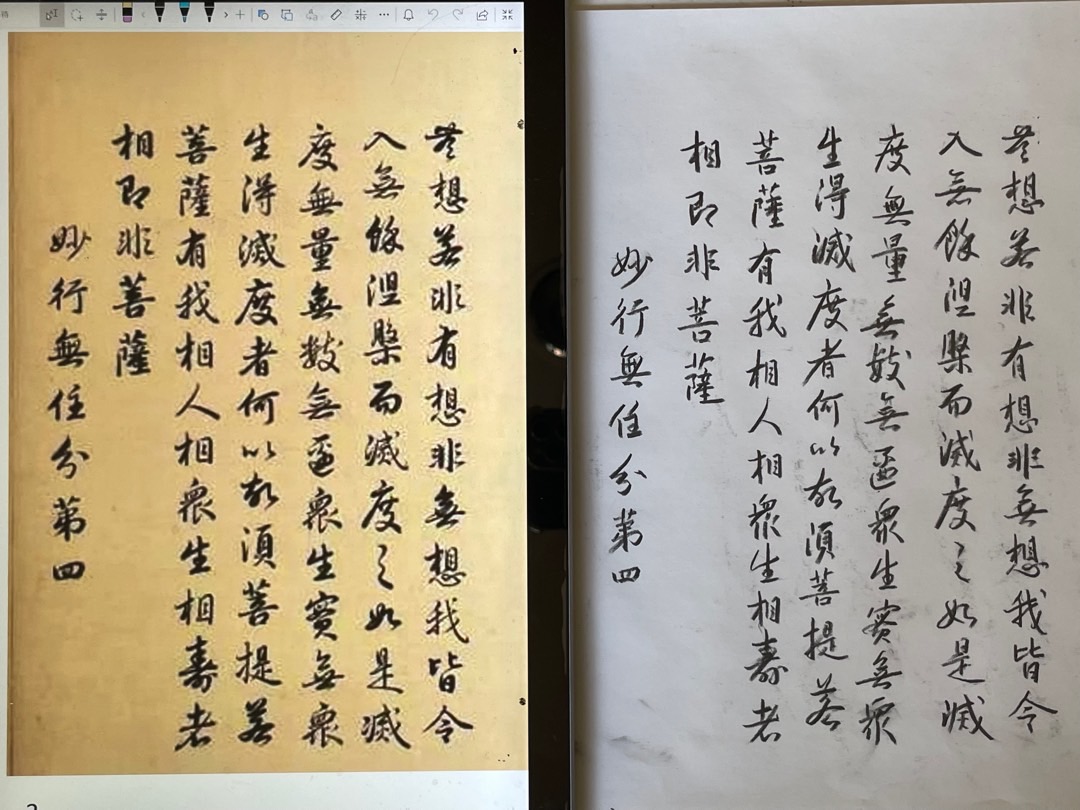 無想若非有想非無想我皆令
入無餘涅槃而滅度之如是滅
度無量無數無邊衆生實無衆
生得滅度者何以故須菩提若
菩薩有我相人相衆生相壽者
相即非菩薩
妙行無住分第四
無想若非有想非無想我皆令
入無餘涅槃而滅度之如是滅
度無量無數無邊衆生實無衆
生得滅度者何以故須菩提若
菩薩有我相人相衆生相壽者
相即非菩薩
妙行無住分第四